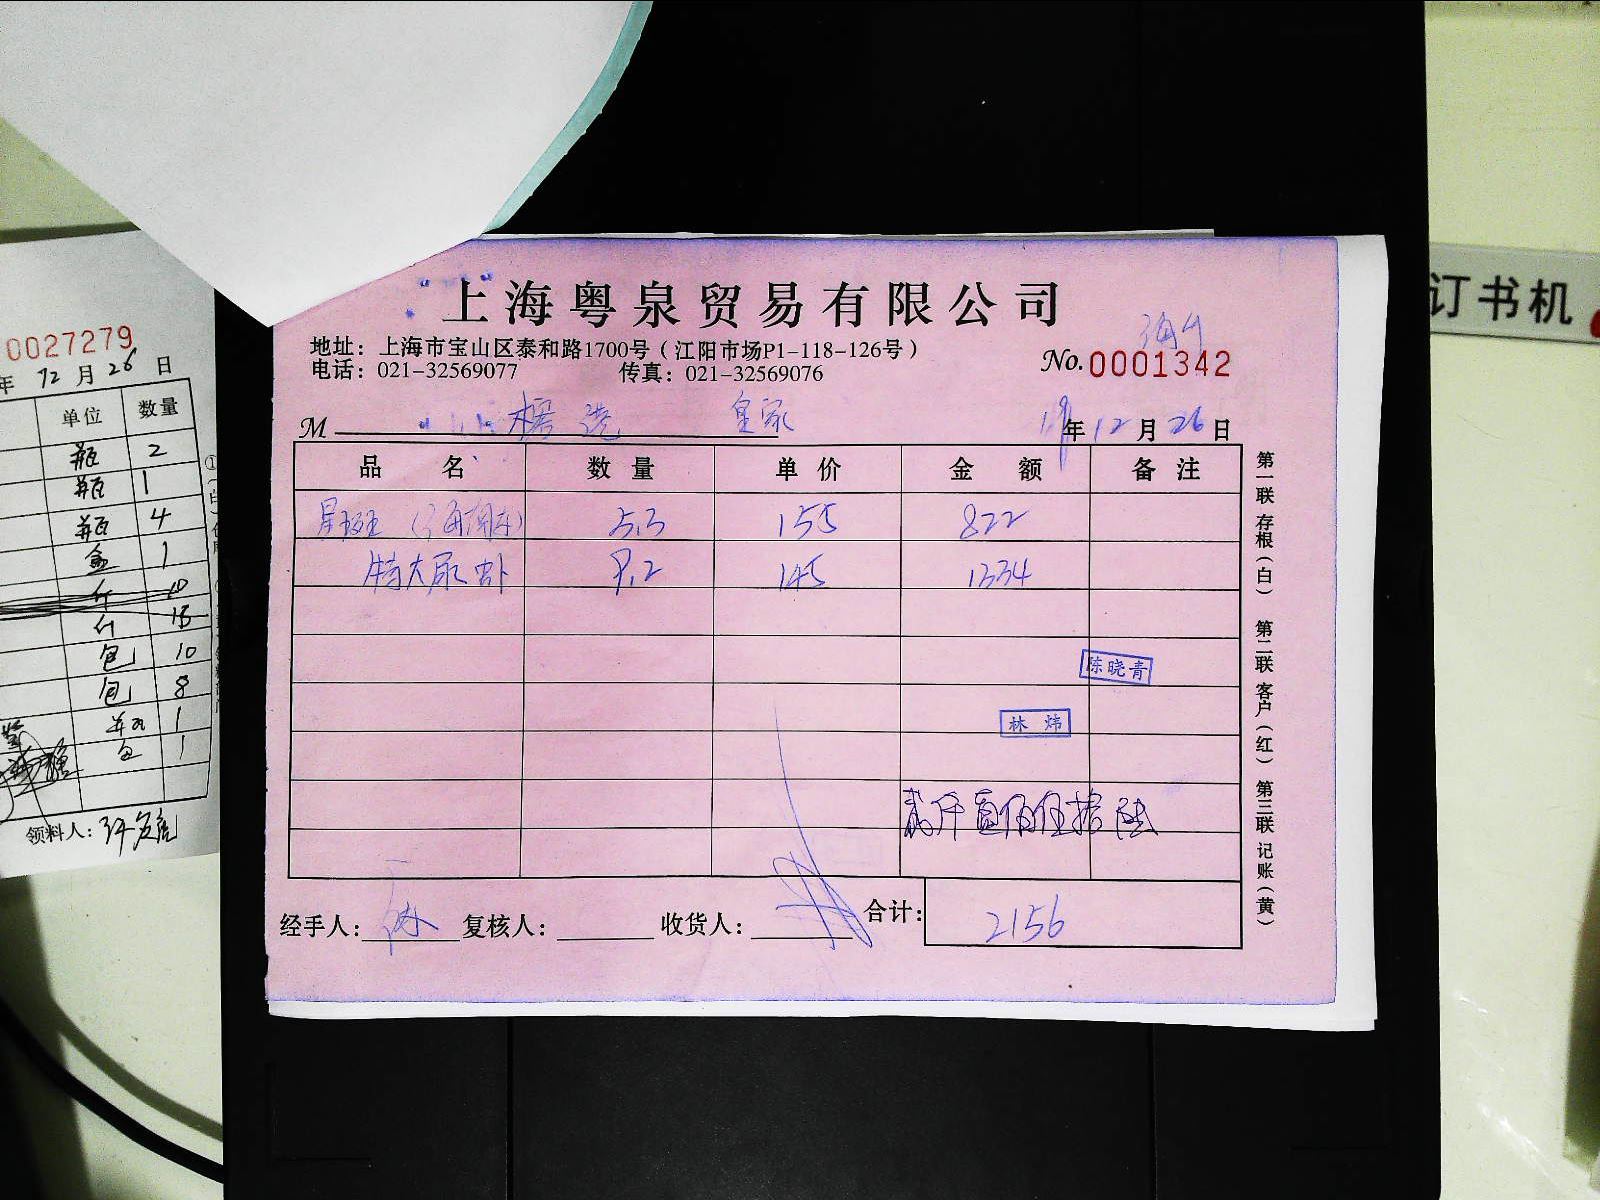 上海粤泉贸易有限公司
地址：上海市宝山区泰和路1700号（江阳市场P1-118-126号）
电话：021-32569077 传真：021-32569076
No.0001342
M 皇家 19年12月26日
品名 数量 单价 金额 备注
星斑 5.3 155 822
特大尿虾 9.2 145 1334
陈晓青
林炜
贰仟壹佰伍拾陆
经手人： 复核人： 收货人： 合计：2156
第一联 存根（白） 第二联 客户（红） 第三联 记账（黄）
0027279
年12月26日
单位 数量
瓶 2
瓶 1
瓶 4
盒 1
斤 10
斤 15
包 10
包 8
瓶 1
包 1
领料人：
订书机